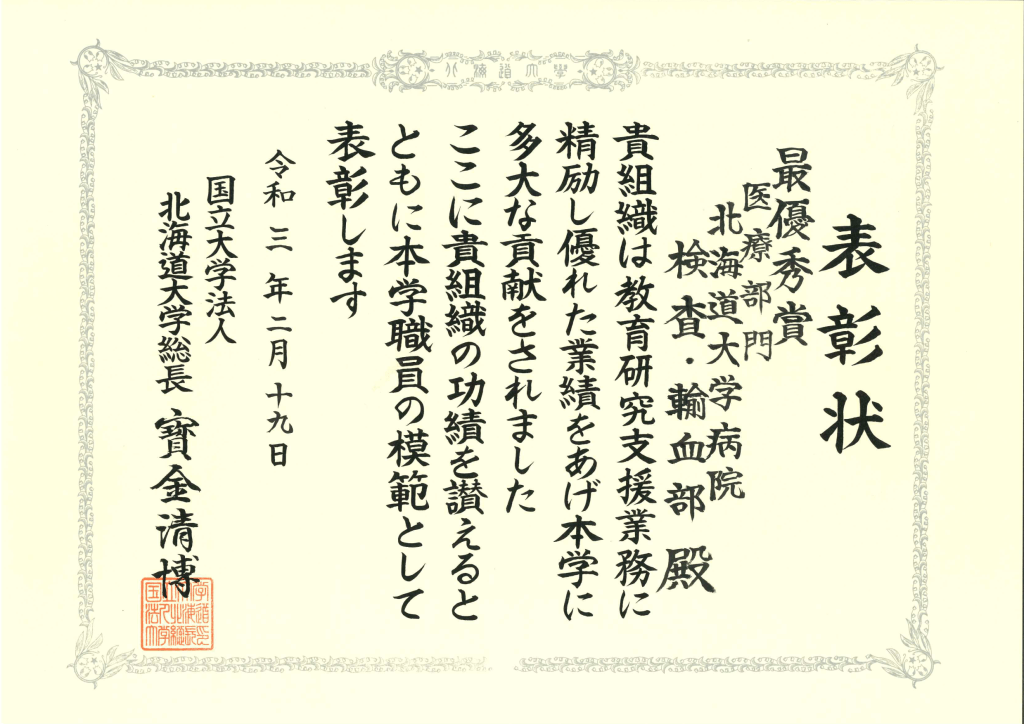 北海道大学
表彰状
最優秀賞
医療部門
北海道大学病院
検査・輸血部 殿
貴組織は教育研究支援業務に
精励し優れた業績をあげ本学に
多大な貢献をされました
ここに貴組織の功績を讃えると
ともに本学職員の模範として
表彰します
令和三年二月十九日
国立大学法人
北海道大学総長 寳金清博